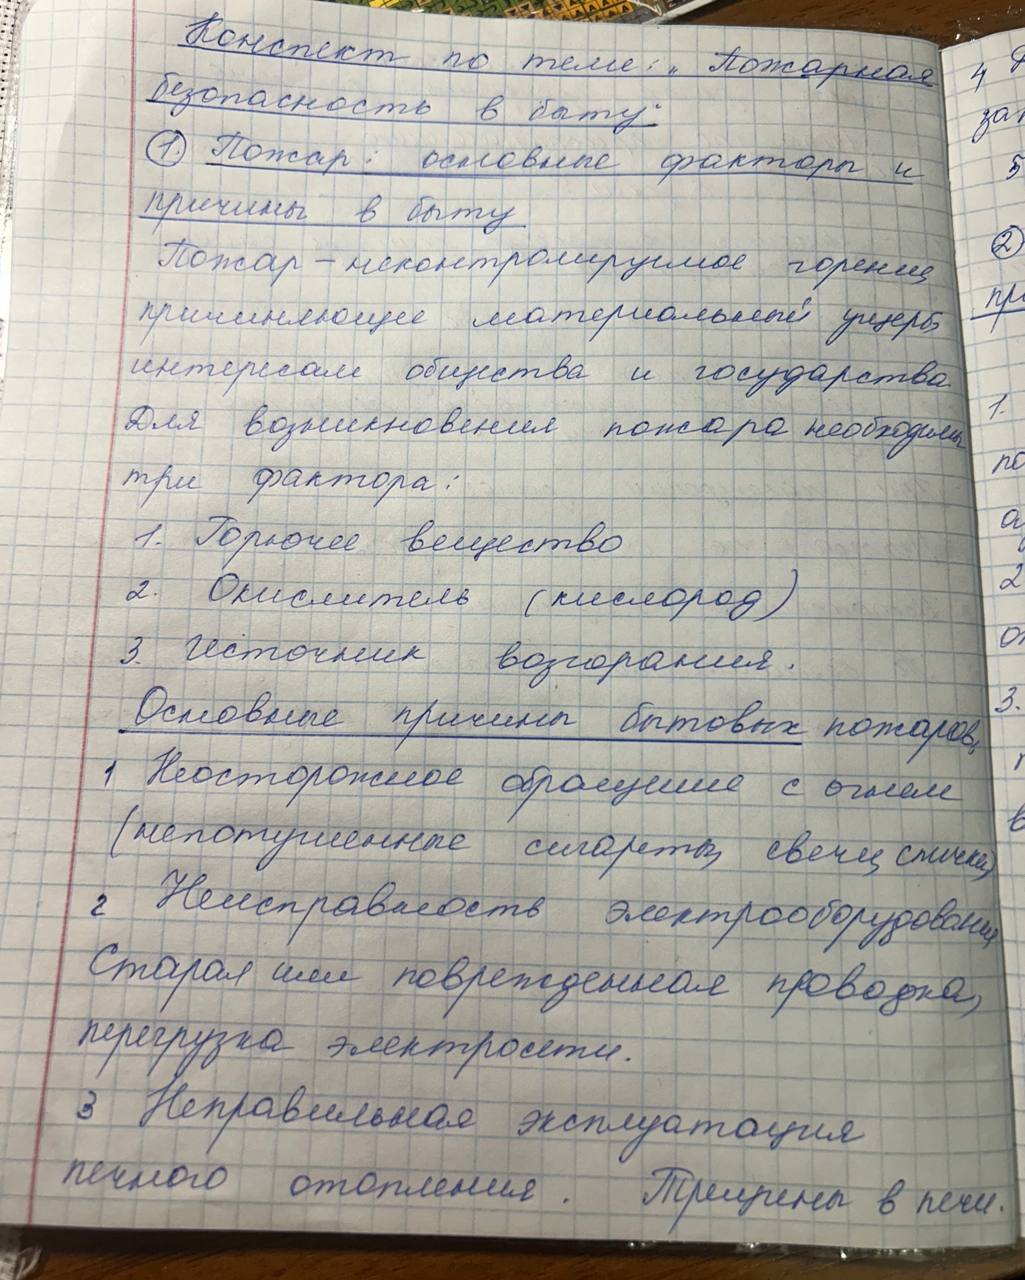 Конспект по теме: „Пожарная
безопасность в быту"
① Пожар: основные факторы и
причины в быту
Пожар – неконтролируемое горение,
причиняющее материальный ущерб,
интересам общества и государства.
Для возникновения пожара необходимы
три фактора:
1. Горючее вещество
2. Окислитель (кислород)
3. Источник возгорания.
Основные причины бытовых пожаров,
1 Неосторожное обращение с огнем
(непотушенные сигареты, свечи, спички)
2 Неисправность электрооборудования,
Старая или поврежденная проводка,
перегрузка электросети.
3 Неправильная эксплуатация
печного отопления. Трещины в печи.
4
зат
5
②
при
1.
по
2
3.